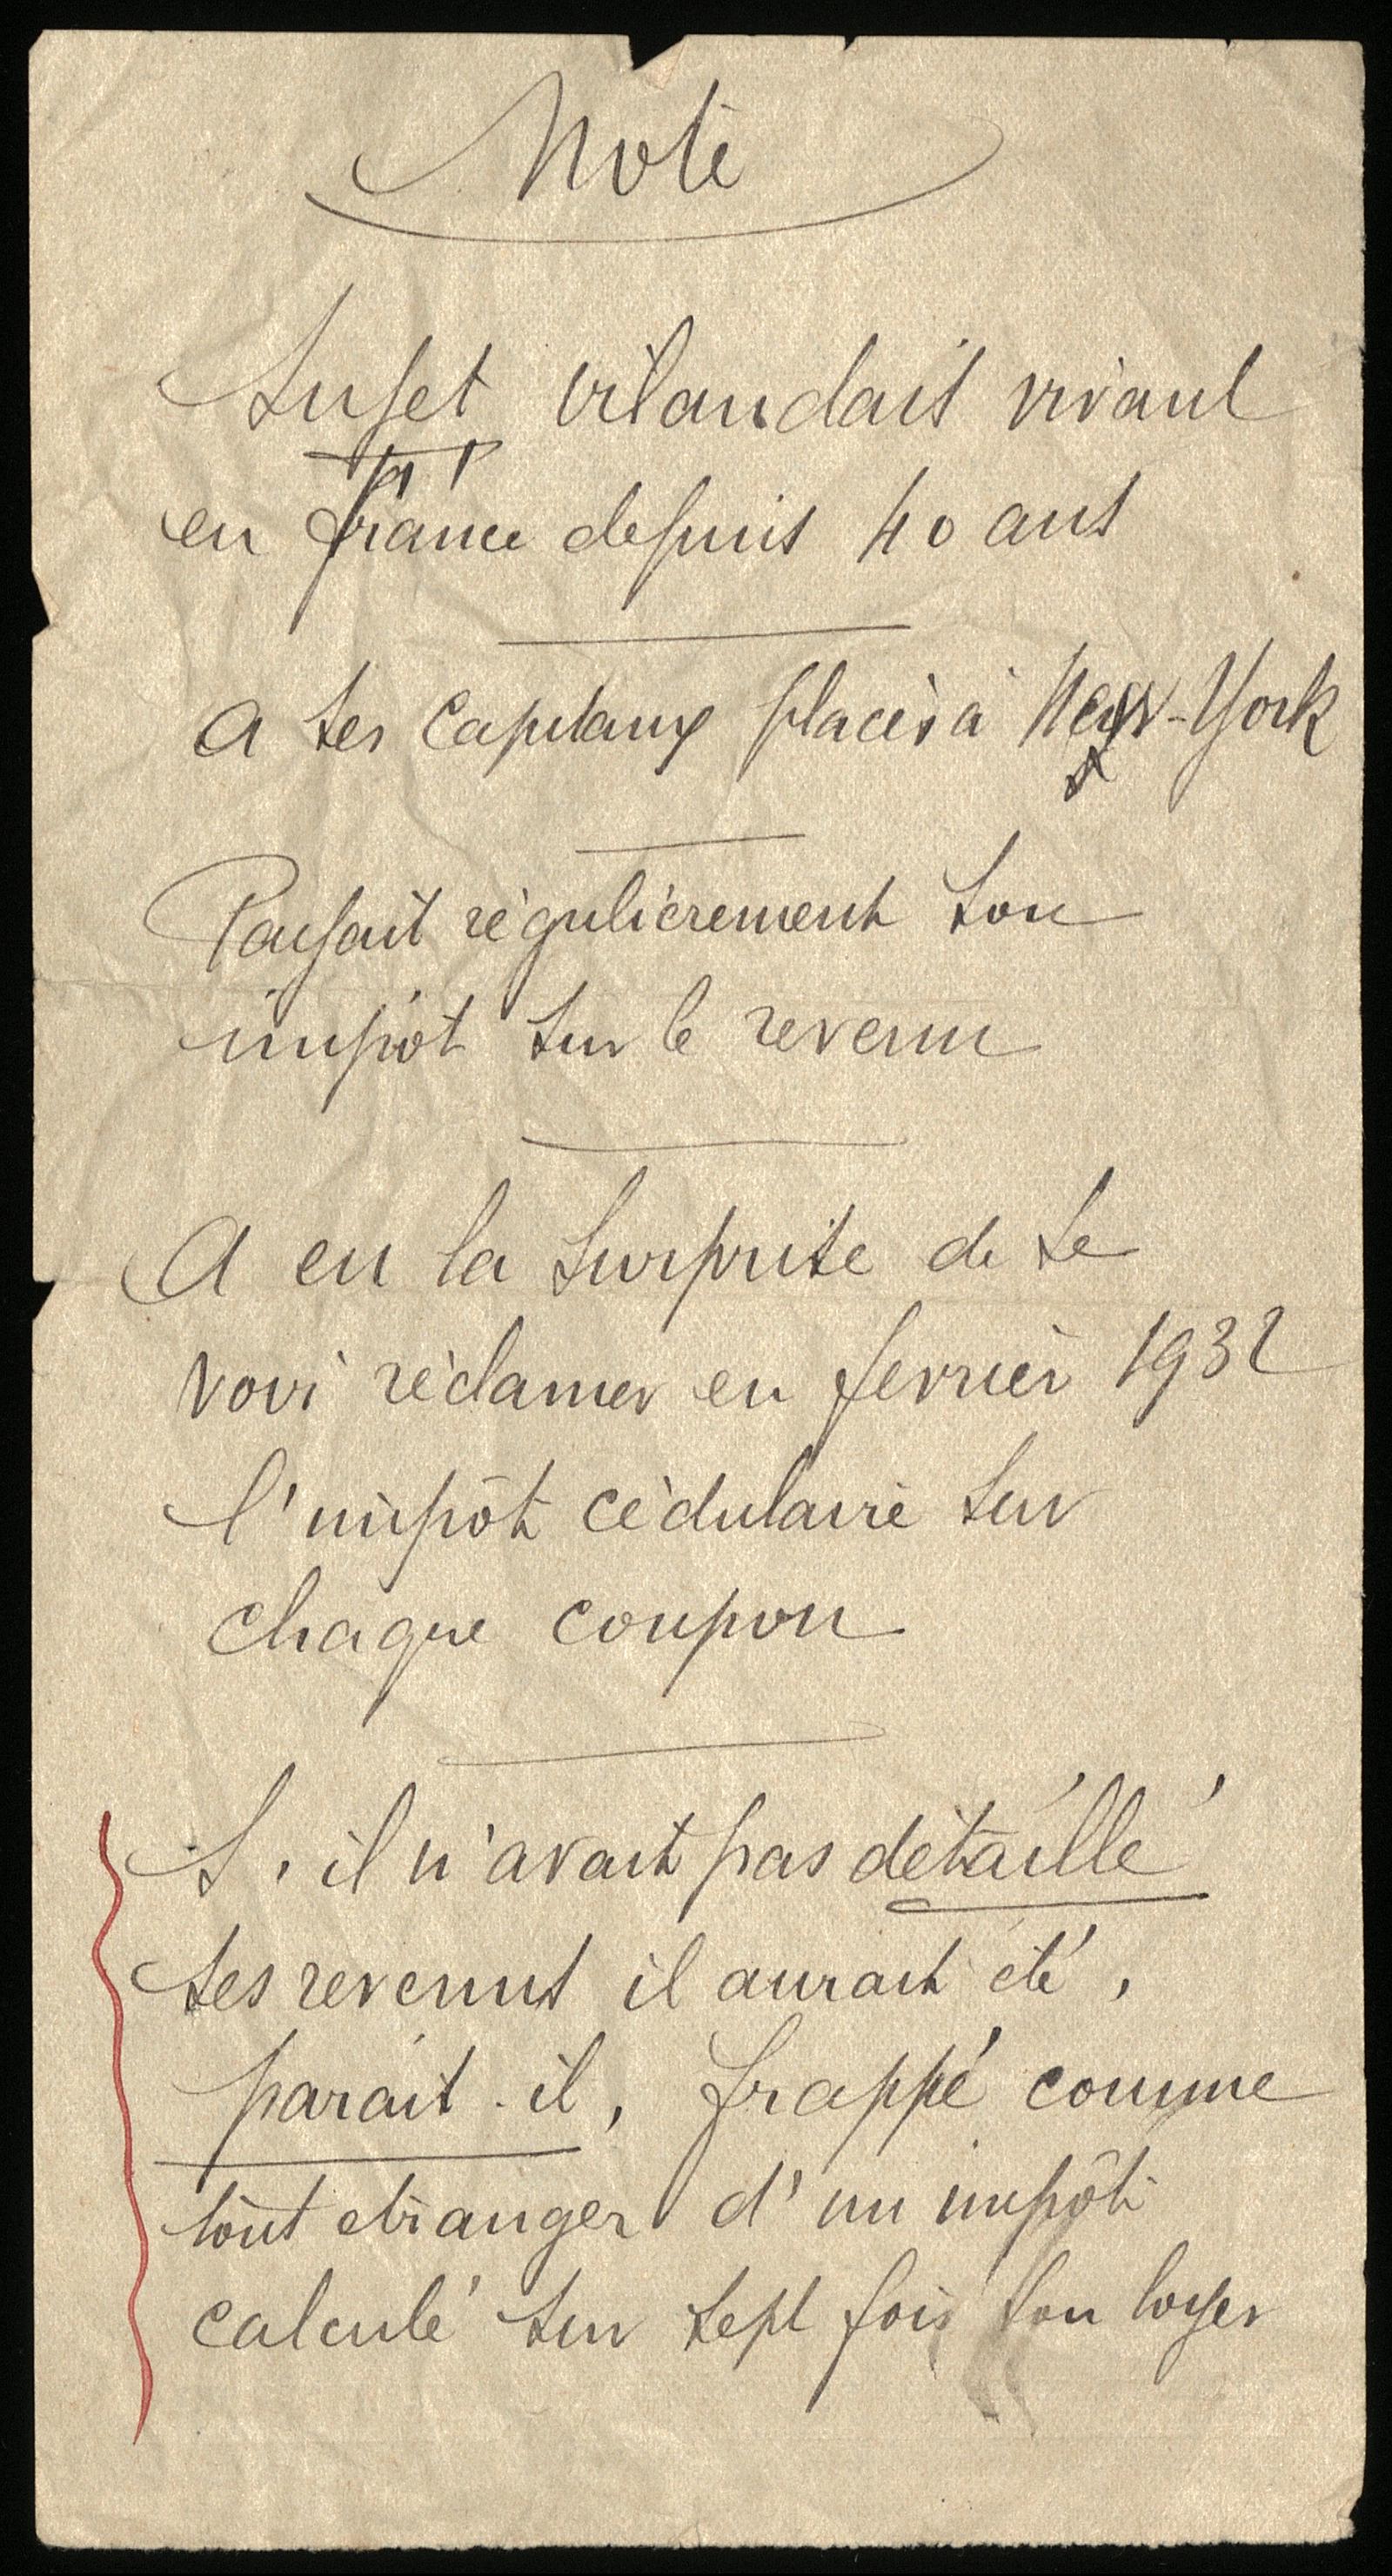 Note
Sujet irlandais vivant
en France depuis 40 ans
a ses capitaux placés à New-York
Payait régulièrement son
impôt sur le revenu
A eu la surprise de se
voir réclamer en fevrier 1932
l'impôt cédulaire sur
chaque coupon
S'il n'avait pas détaillé
ses revenus il aurait été,
parait-il, frappé comme
tout etranger d'un impôt
calculé sur sept fois son loyer